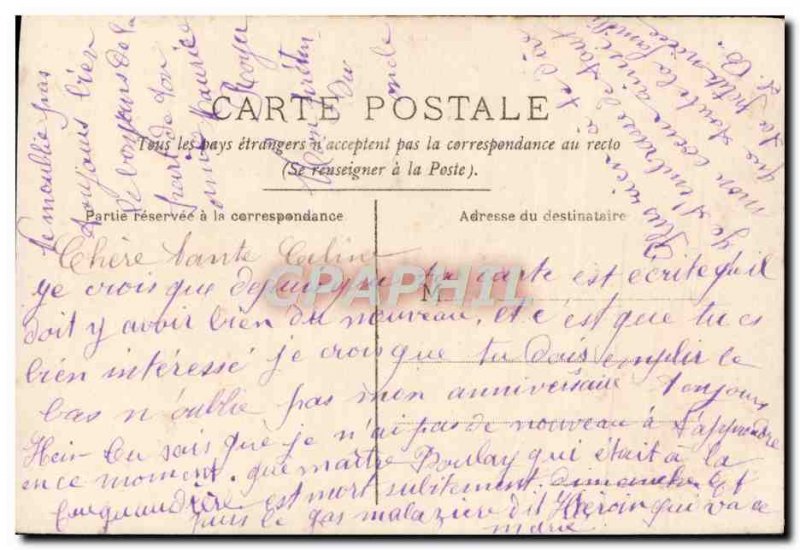 CARTE POSTALE
Tous les pays étrangers n'acceptent pas la correspondance au recto
(Se renseigner à la Poste).
Partie réservée à la correspondance
Adresse du destinataire
M
CPAPHIL
Chère tante Celine
je crois que depuis que ta carte est écrite qu'il
doit y avoir bien du nouveau, et c'est que tu es
bien intéressé je crois que tu dois emplir le
bas n'oublie pas mon anniversaire toujours
Hein tu sais que je n'ai pas de nouveau à t'apprendre
en ce moment. que maître Boulay qui était a la
est mort subitement dimanche et
puis le gas dit qui va ce
marié
Plus rien a te dire
je t'embrasse de tout
mon cœur ainsi
que toute la famille
ta petite nièce
ne m'oublie pas
toujours bien
le bonjour de la
part de ton
Maurice
Royer